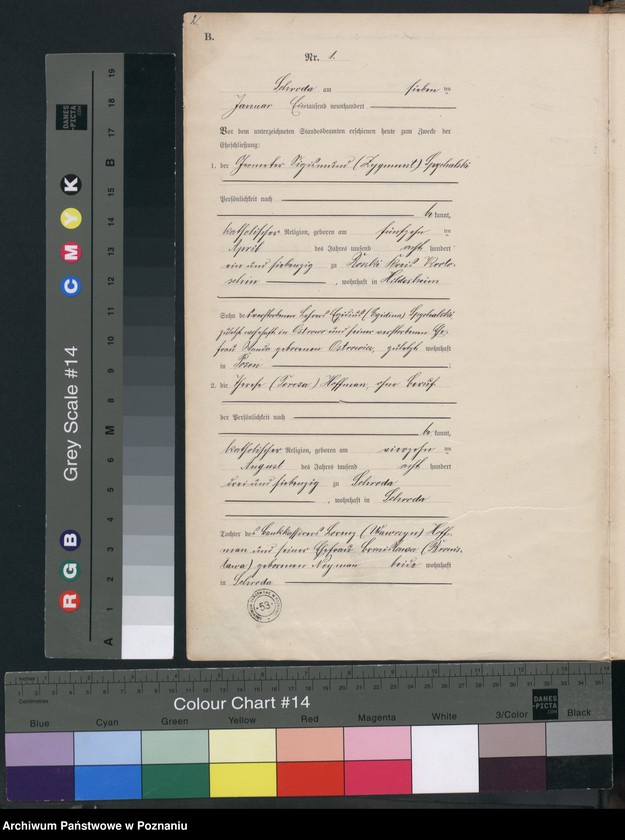 2
B.
Nr. 1.
Schroda am sieben ten
Januar Eintausend neunhundert
Vor dem unterzeichneten Standesbeamten erschienen heute zum Zwecke der
Eheschließung:
1. der Geometer Sigismund (Zygmunt)
Persönlichkeit nach
be kannt,
katholischer Religion, geboren am fünfzehn ten
April des Jahres tausend acht hundert
ein und siebenzig zu Kreis
, wohnhaft in Hildesheim
Sohn des verstorbenen Lehrers
zuletzt wohnhaft in Ostrowo und seiner verstorbenen Ehe-
frau Wanda geborenen zuletzt wohnhaft
in Posen ;
2. die Therese (Teresa) Hoffman, ohne Beruf
der Persönlichkeit nach
be kannt,
katholischer Religion, geboren am vierzehn ten
August des Jahres tausend acht hundert
drei und siebenzig zu Schroda
, wohnhaft in Schroda
Tochter des Lorenz (Wawrzyn) Hoff-
man und seiner Ehefrau Bronislawa (Bronis-
lawa) geborenen Neyman beide wohnhaft
in Schroda
53
Grey Scale #14
R G B
C M Y K
A 1 2 3 4 5 6 M 8 9 10 11 12 13 14 15 B 17 18 19
DANES-PICTA.COM
Inches
Centimetres
Colour Chart #14
Blue Cyan Green Yellow Red Magenta White 3/Color Black
DANES-PICTA.COM
Archiwum Państwowe w Poznaniu